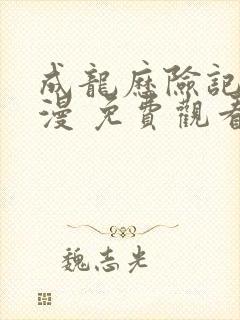 成龍歷險記
漫 免費觀看
魏志光